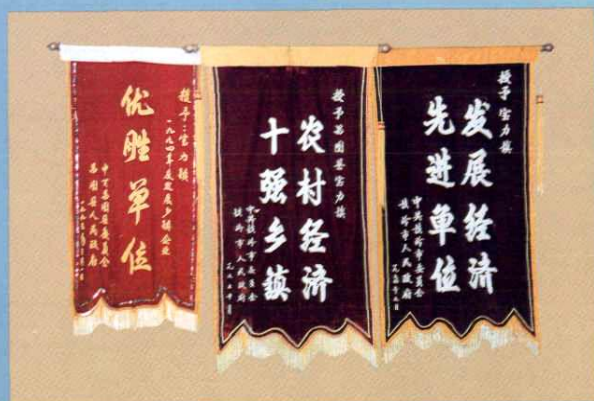 授予:宝力镇
一九九四年度发展乡镇企业
优胜单位
中共昌图县委员会
昌图县人民政府
授予昌图县宝力镇
农村经济
十强乡镇
中共铁岭市委员会
铁岭市人民政府
授予宝力镇
发展经济
先进单位
中共铁岭市委员会
铁岭市人民政府